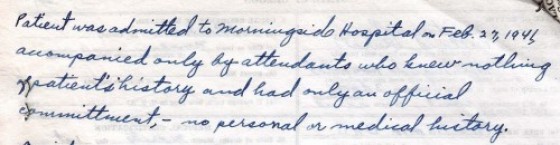 Patient was admitted to Morningside Hospital on Feb. 27, 1941,
accompanied only by attendants who knew nothing
of patient's history and had only an official
committment, - no personal or medical history.